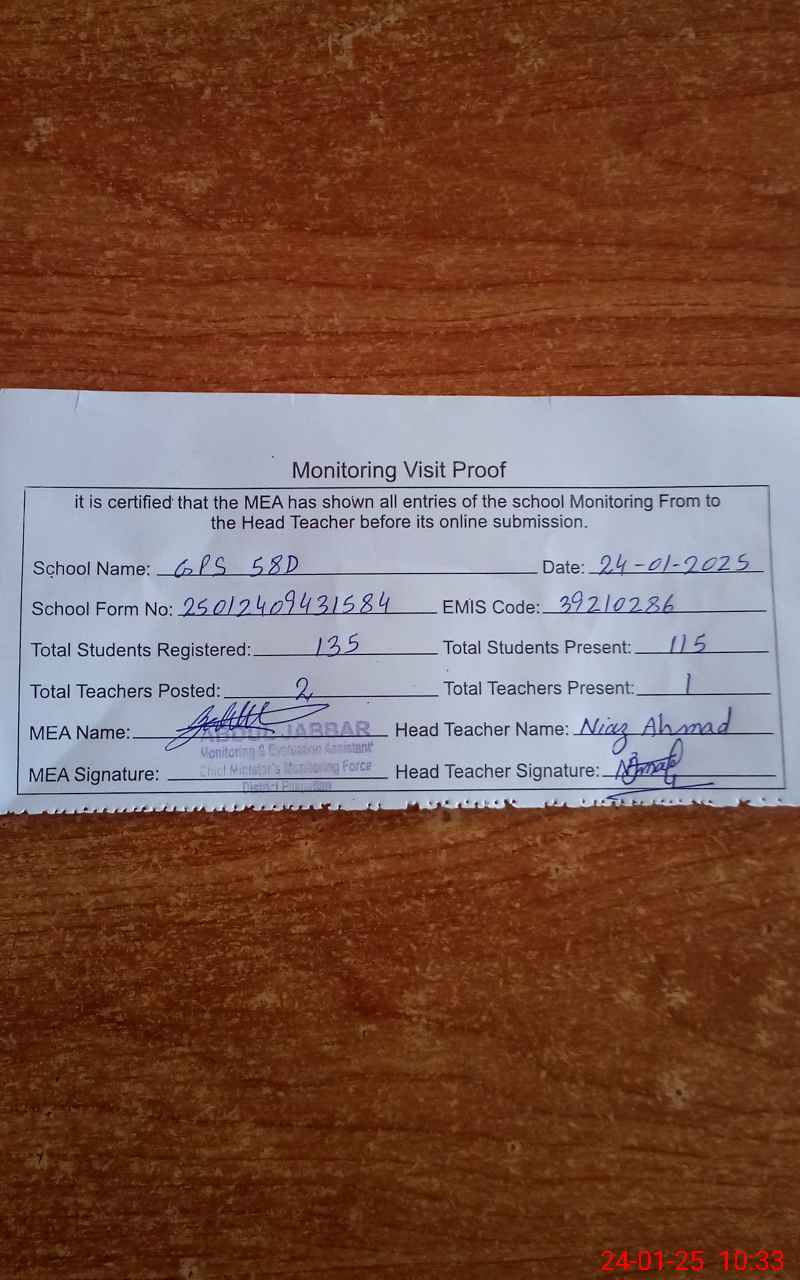 Monitoring Visit Proof
it is certified that the MEA has shown all entries of the school Monitoring From to
the Head Teacher before its online submission.
School Name: GPS 58D Date: 24-01-2025
School Form No: 25012409431584 EMIS Code: 39210286
Total Students Registered: 135 Total Students Present: 115
Total Teachers Posted: 2 Total Teachers Present: 1
MEA Name: ABDUL JABBAR Head Teacher Name: Niaz Ahmad
Monitoring & Evaluation Assistant
MEA Signature: Chief Minister's Monitoring Force Head Teacher Signature:
District
24-01-25 10:33